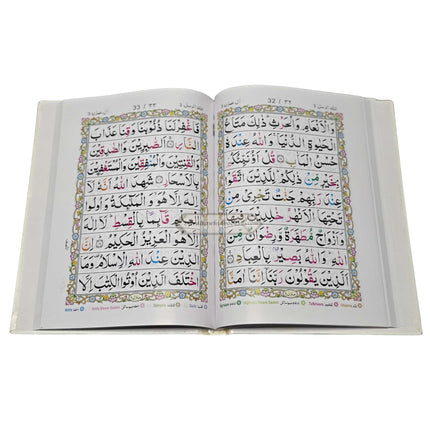 32 / ٣٢
وَالْاَنْعَامِ وَالْحَرْثِ ذٰلِكَ مَتَاعُ
الْحَيٰوةِ الدُّنْيَا وَاللّٰهُ عِنْدَهٗ
حُسْنُ الْمَاٰبِ قُلْ اَؤُنَبِّئُكُمْ
بِخَيْرٍ مِّنْ ذٰلِكُمْ لِلَّذِيْنَ اتَّقَوْا
عِنْدَ رَبِّهِمْ جَنّٰتٌ تَجْرِيْ مِنْ
تَحْتِهَا الْاَنْهٰرُ خٰلِدِيْنَ فِيْهَا
وَاَزْوَاجٌ مُّطَهَّرَةٌ وَّرِضْوَانٌ مِّنَ
اللّٰهِ وَاللّٰهُ بَصِيْرٌ بِالْعِبَادِ
اَلَّذِيْنَ يَقُوْلُوْنَ رَبَّنَا اِنَّنَا اٰمَنَّا
33 / ٣٣
فَاغْفِرْ لَنَا ذُنُوْبَنَا وَقِنَا عَذَابَ
النَّارِ اَلصّٰبِرِيْنَ وَالصّٰدِقِيْنَ
وَالْقٰنِتِيْنَ وَالْمُنْفِقِيْنَ وَالْمُسْتَغْفِرِيْنَ
بِالْاَسْحَارِ شَهِدَ اللّٰهُ اَنَّهٗ لَا
اِلٰهَ اِلَّا هُوَ وَالْمَلٰٓئِكَةُ وَاُولُوا
الْعِلْمِ قَآئِمًا بِالْقِسْطِ لَا اِلٰهَ
اِلَّا هُوَ الْعَزِيْزُ الْحَكِيْمُ اِنَّ
الدِّيْنَ عِنْدَ اللّٰهِ الْاِسْلَامُ وَمَا
اخْتَلَفَ الَّذِيْنَ اُوْتُوا الْكِتٰبَ اِلَّا